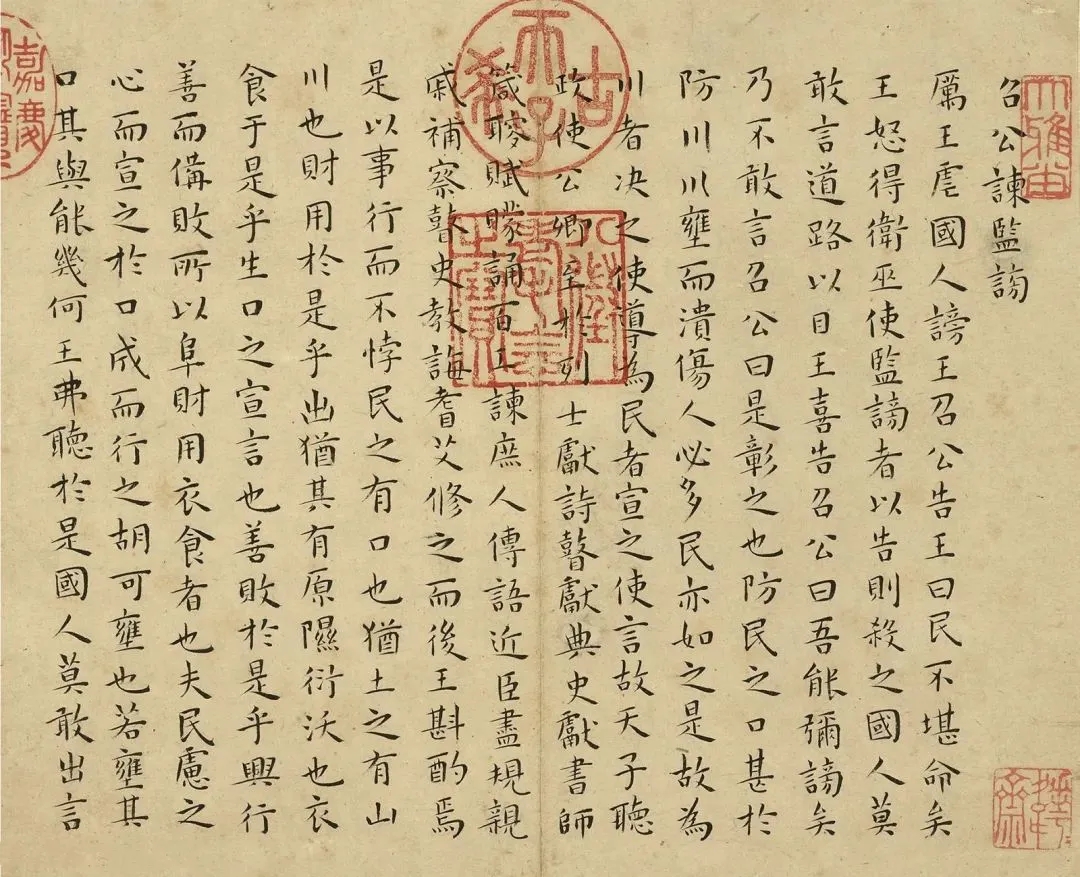 召公諫監謗
厲王虐國人謗王召公告王曰民不堪命矣
王怒得衛巫使監謗者以告則殺之國人莫
敢言道路以目王喜告召公曰吾能彌謗矣
乃不敢言召公曰是彰之也防民之口甚於
防川川壅而潰傷人必多民亦如之是故為
川者决之使導為民者宣之使言故天子聽
政使公卿至於列士獻詩瞽獻典史獻書師
箴瞍賦矇誦百工諫庶人傳語近臣盡規親
戚補察瞽史教誨耆艾修之而後王斟酌焉
是以事行而不悖民之有口也猶土之有山
川也財用於是乎出猶其有原隰衍沃也衣
食于是乎生口之宣言也善敗於是乎興行
善而備敗所以阜財用衣食者也夫民慮之
心而宣之於口成而行之胡可壅也若壅其
口其與能幾何王弗聽於是國人莫敢出言
古希天子
八徵耄念之寶
嘉慶